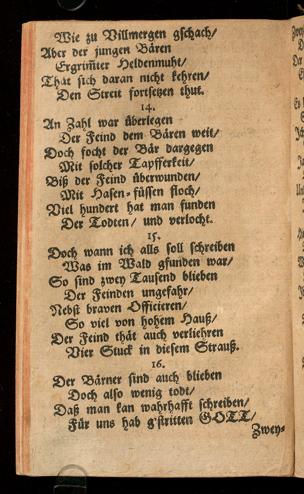 Wie zu Villmergen gschach/
Aber der jungen Bären
Ergrim̃ter Heldenmuht/
That sich daran nicht kehren/
Den Streit fortsetzen thut.
14.
An Zahl war überlegen
Der Feind dem Bären weit/
Doch focht der Bär dargegen
Mit solcher Tapfferkeit/
Biß der Feind überwunden/
Mit Hasen-füssen floch/
Viel hundert hat man funden
Der Todten/ und verlocht.
15.
Doch wann ich alls soll schreiben
Was im Wald gfunden war/
So sind zwey Tausend blieben
Der Feinden ungefahr/
Nebst braven Officieren/
So viel von hohem Hauß/
Der Feind thät auch verliehren
Vier Stuck in diesem Strauß.
16.
Der Bärner sind auch blieben
Doch also wenig todt/
Daß man kan wahrhafft schreiben/
Für uns hab g'stritten GOTT/
Zwey-